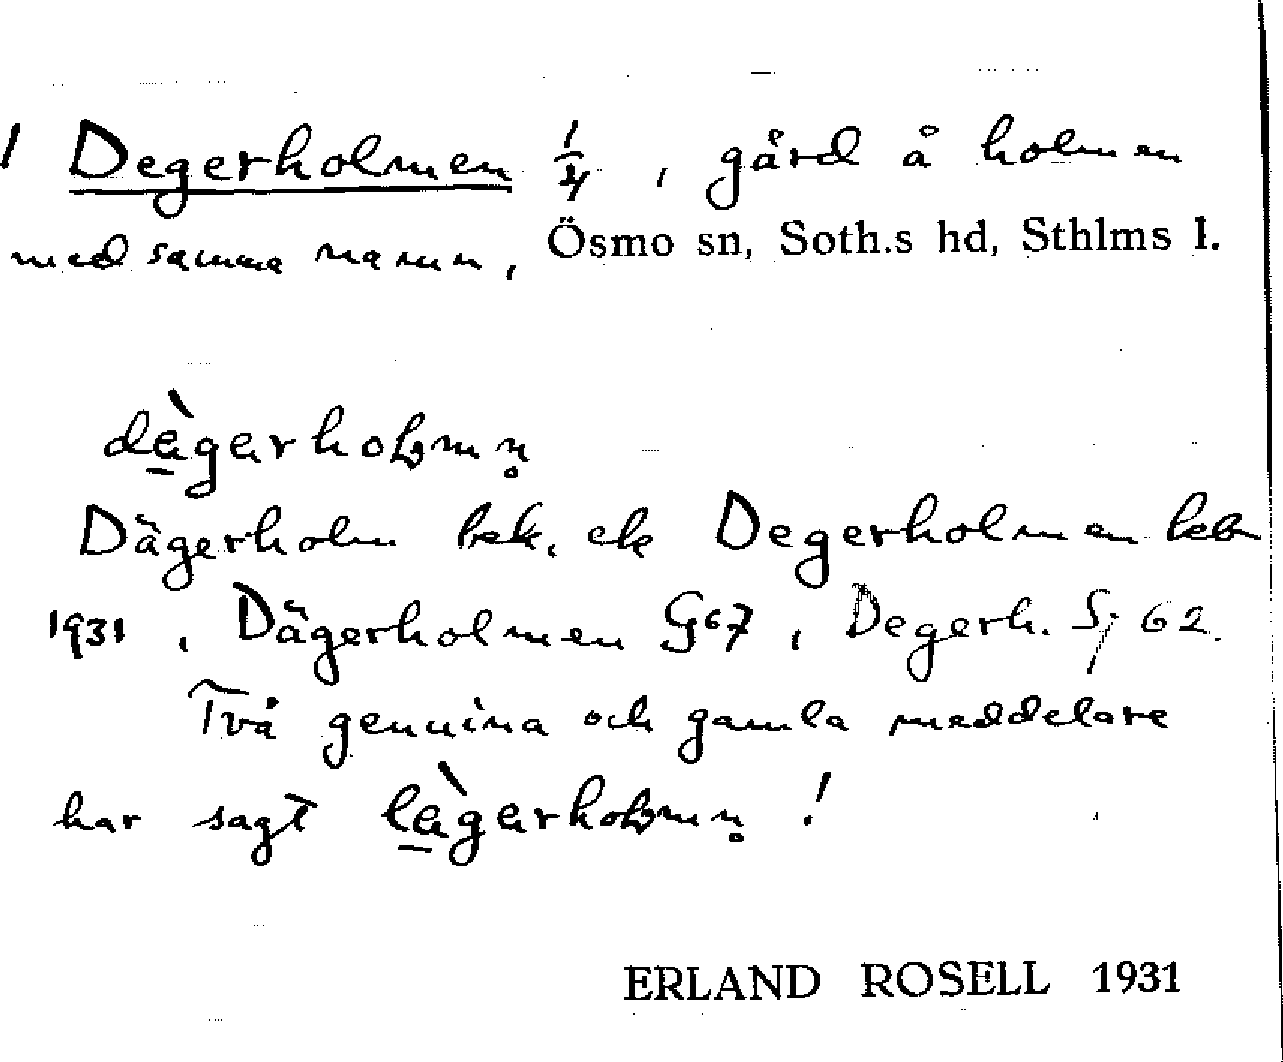 1 Degerholmen 1/4, gård å holmen
med samma namn, Ösmo sn, Soth.s hd, Sthlms l.
dägerholmn̥
Dägerholm bek. ek Degerholmen keb
1931, Dägerholmen G67, Degerh. Sj 62.
Två genuina och gamla meddelare
har sagt lägerholmn̥!
ERLAND ROSELL 1931